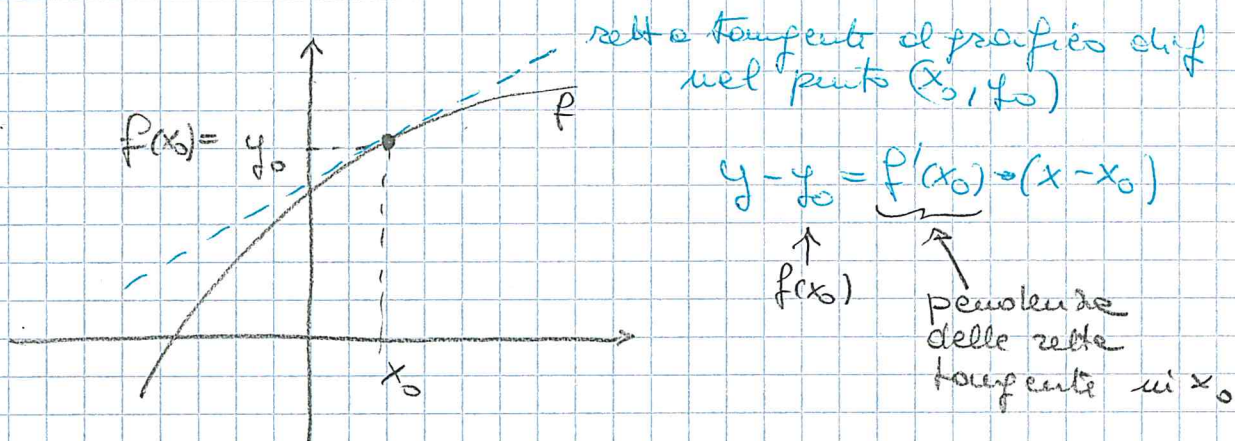 retta tangente al grafico di f
nel punto (x₀, y₀)
f
f(x₀) = y₀
y - y₀ = f'(x₀) · (x - x₀)
f(x₀)
pendenza
della retta
tangente in x₀
x₀